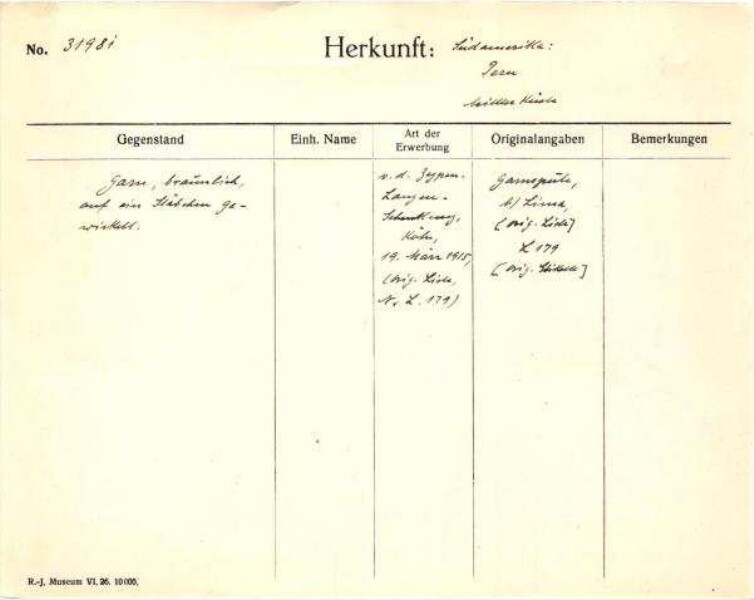 No. 31981
Herkunft: Südamerika:
Peru
mittlere Küste
Gegenstand
Einh. Name
Art der
Erwerbung
Originalangaben
Bemerkungen
Garn, bräunlich,
auf ein Stäbchen ge-
wickelt.
v. d. Zypen-
Langen-
Schenkung,
Köln,
19. März 1915,
(orig. Liste,
Nr. L. 179)
Garnspule,
b/ Lima,
[orig. Liste]
L 179
[orig. ]
R.-J. Museum VI. 26. 10000.